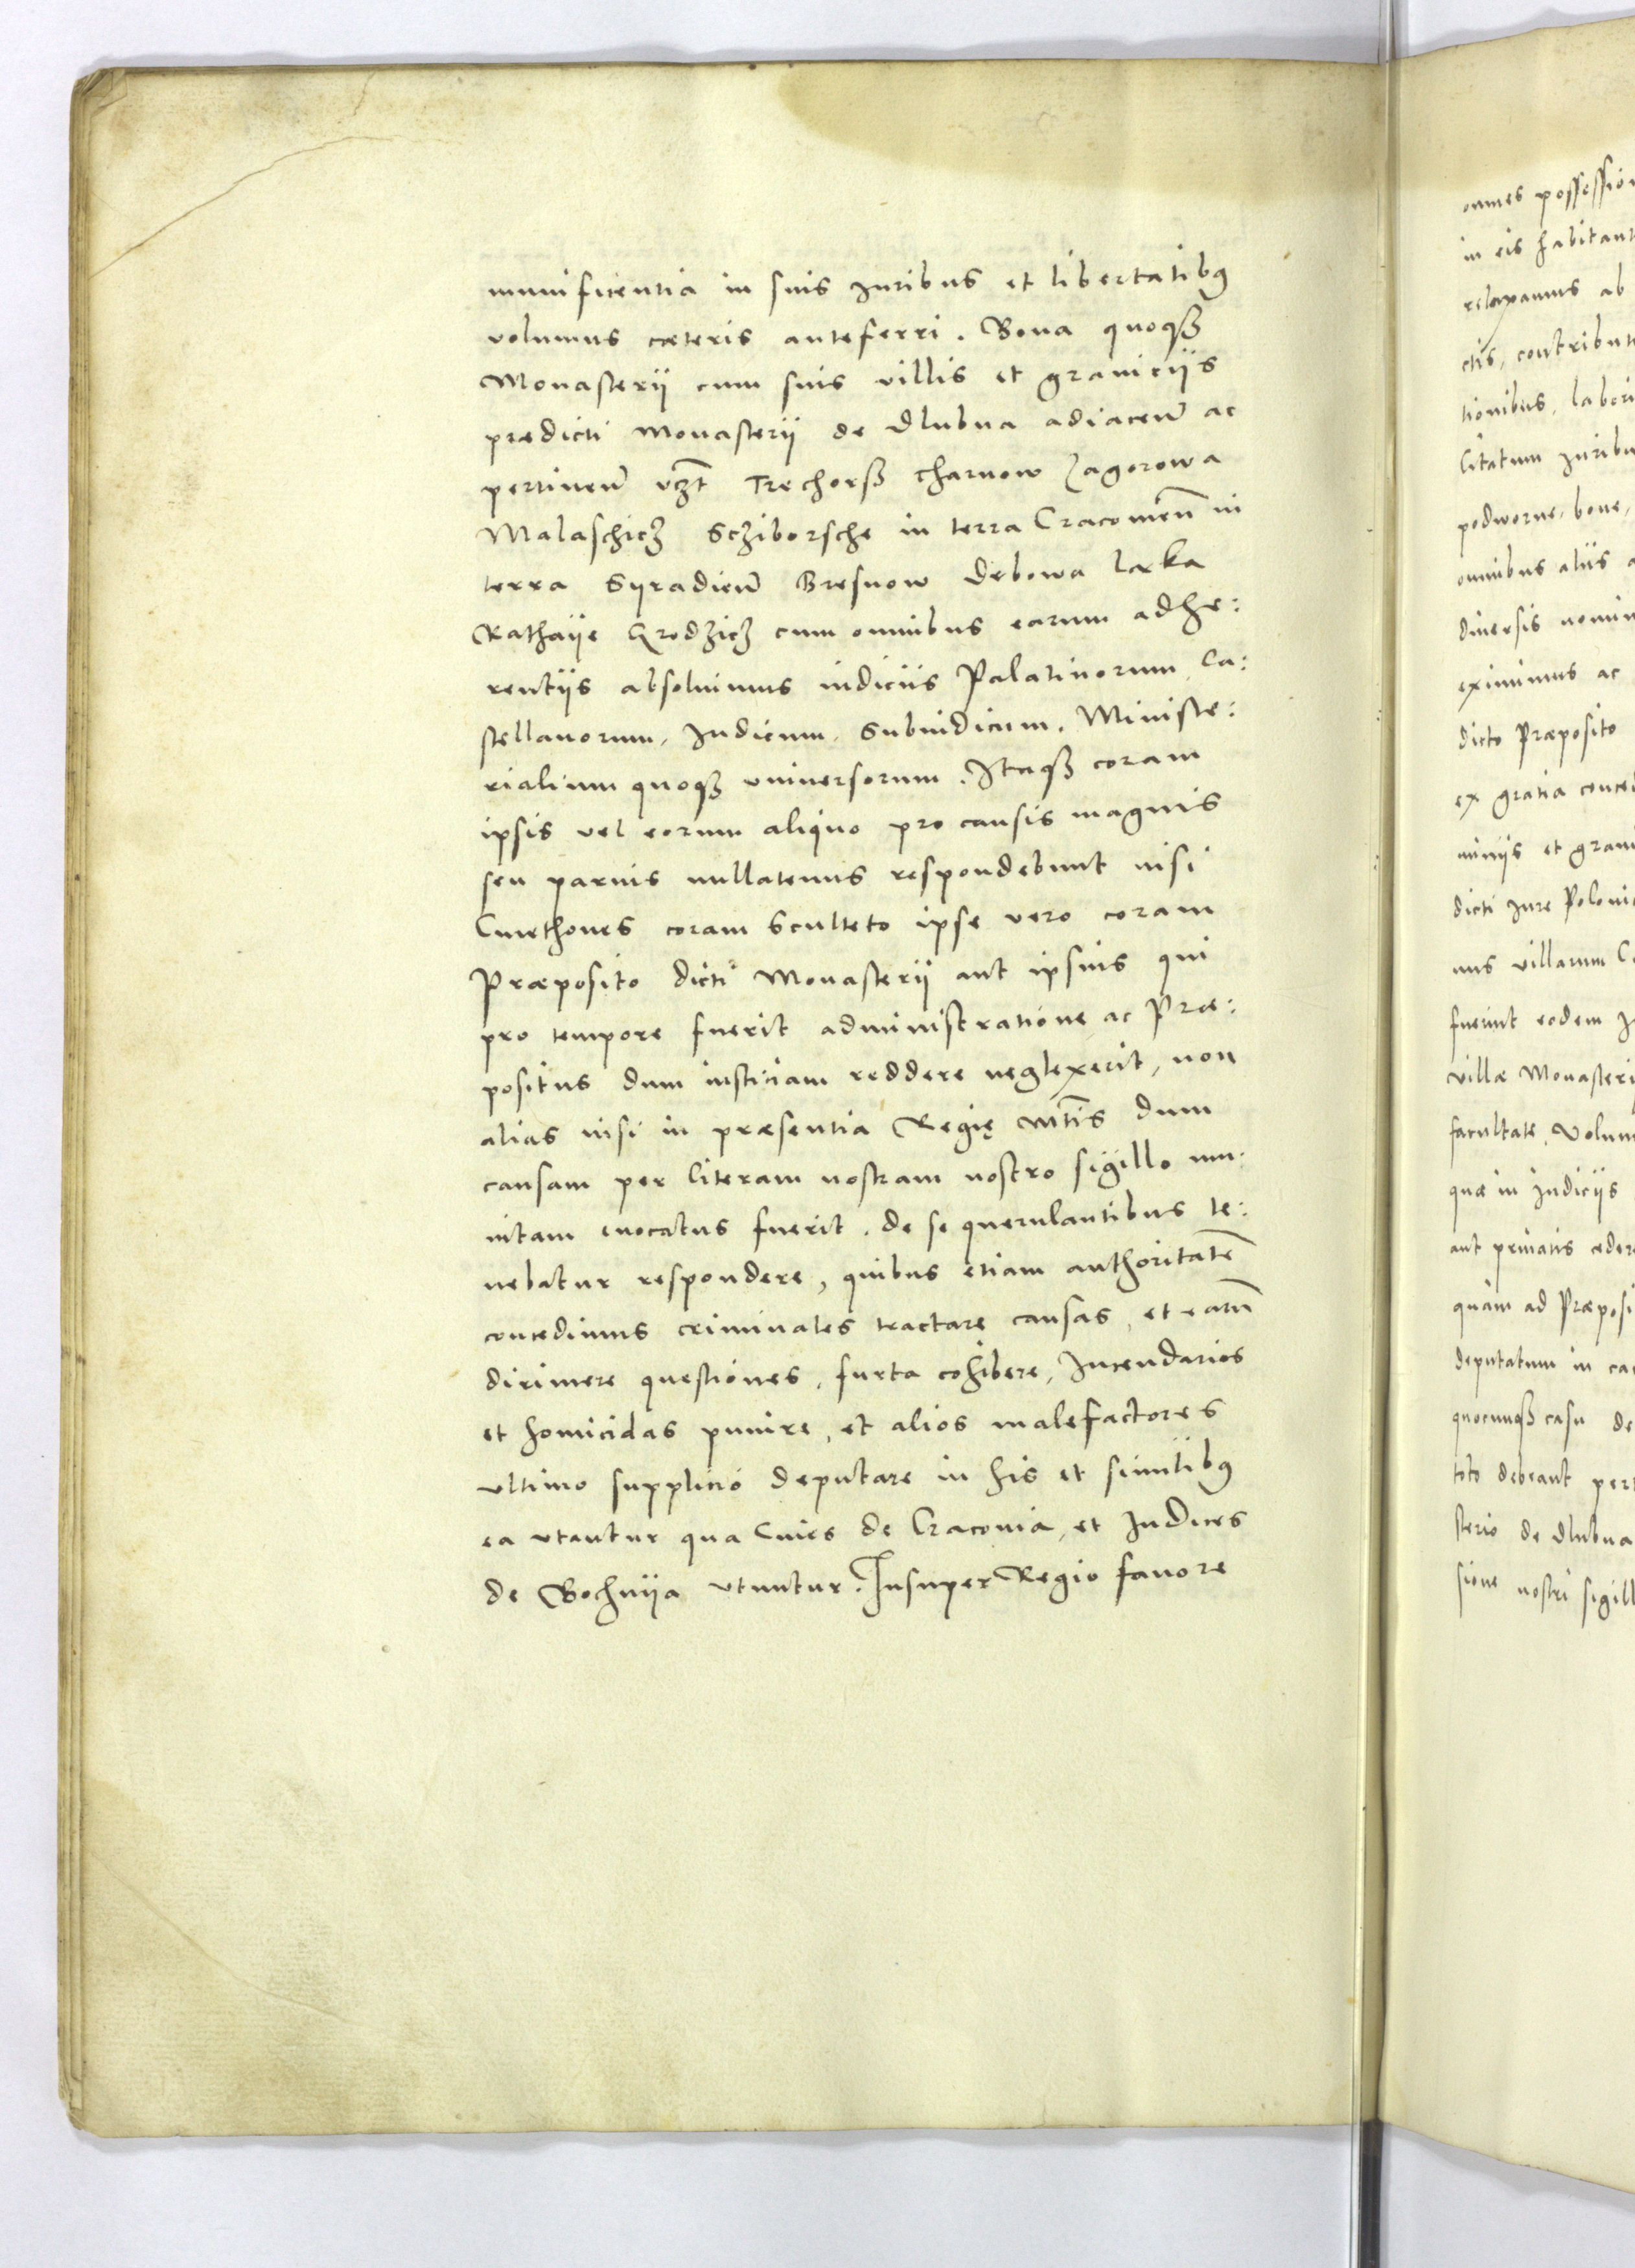 munificentia in suis iuribus et libertatibq
volumus cæteris anteferri. Bona quoqß
Monasterij cum suis villis et granicijs
prædicti Monasterij de Dlubna adiaceñ ac
pertineñ vzt̃ Trechorß Charnow Zagorowa
Malaschicz Scziborsche in terra Cracouieñ in
terra Syradieñ Bresnow Debowa læka
Rathaije Grodzicz cum omnibus earum adhe:
rentijs absoluimus iudicijs Palatinorum, Ca:
stellanorum, Iudicum, Subiudicum, Ministe:
rialium quoqß vniuersorum. Itaqß coram
ipsis vel eorum aliquo pro causis magnis
seu paruis nullatenus respondebunt nisi
Cmethones coram Sculteto ipse vero coram
Præposito dicti Monasterij aut ipsius qui
pro tempore fuerit administratione ac Præ:
positus dum iusticiam reddere neglexerit, non
alias nisi in præsentia Regię Mt̃is dum
causam per literam nostram nostro sigillo mu:
nitam euocatus fuerit, de se querulantibus te:
nebatur respondere, quibus etiam authoritatẽ
concedimus criminales tractare causas, et earũ
dirimere questiones, furta cohibere, Incendarios
et homicidas punire, et alios malefactores
vltimo supplicio deputare in his et similibq
ea vtantur qua Ciues de Cracouia, et Iudices
de Bochnija vtuntur. Insuper Regio fauore
omnes possession
in eis habitant
relaxamus ab
ctis, contributi
tionibus, labori
litatum iuribu
podworne, boue,
omnibus alijs a
diuersis nomin
eximimus ac
dicto Præposito
ex gratia conced
minijs et grani
dicti iure Poloni
nus villarum C
fuerint eodem I
villæ Monasteri
facultate, Volum
quæ in Iudicijs
aut priuatis æder
quàm ad Præposi
deputatum in ca
quocunqß casu de
toto debeant pert
sterio de Dlubna
sione nostri sigill